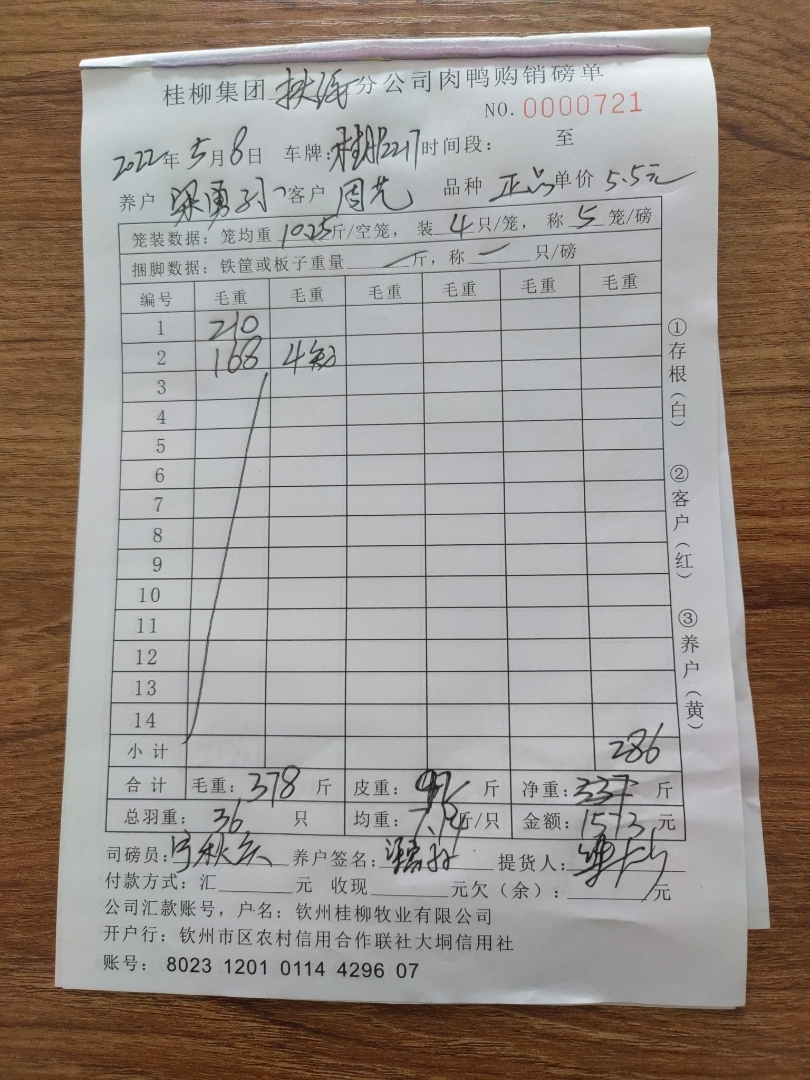 桂柳集团 扶绥 分公司肉鸭购销磅单
NO. 0000721
2022年5月8日 车牌: 时间段: 至
养户 梁勇 客户 周 品种 正品 单价 5.5元
笼装数据: 笼均重 10.25 斤/空笼, 装 4 只/笼, 称 5 笼/磅
捆脚数据: 铁筐或板子重量 斤, 称 只/磅
编号 毛重 毛重 毛重 毛重 毛重 毛重
1 210
2 168 4
3
4
5
6
7
8
9
10
11
12
13
14
小计 286
合计 毛重: 378 斤 皮重: 斤 净重: 斤
总羽重: 36 只 均重: 斤/只 金额: 1573 元
司磅员: 养户签名: 提货人:
付款方式: 汇 元 收现 元欠(余): 元
公司汇款账号, 户名: 钦州桂柳牧业有限公司
开户行: 钦州市区农村信用合作联社大垌信用社
账号: 8023 1201 0114 4296 07
①存根(白)
②客户(红)
③养户(黄)